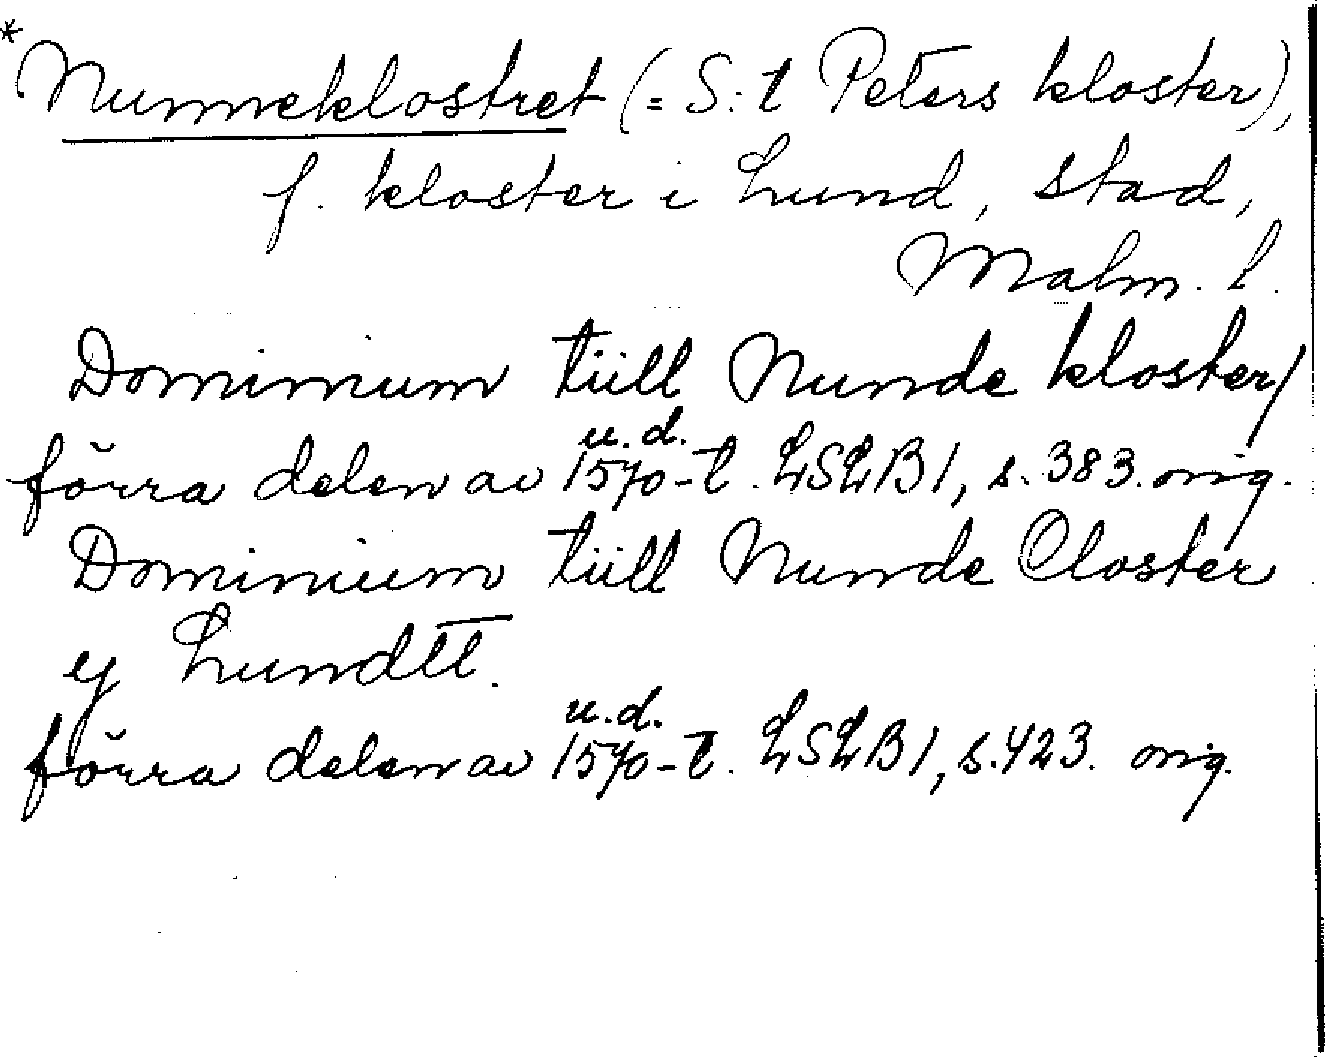 *Nunneklostret (= S:t Peters kloster),
f. kloster i Lund, stad,
Malm. l.
Dominium tiill Nunde kloster/
förra delen av u.d. 1570-t. LSLB 1, s. 383. orig.
Dominium tiill Nunde Closter
ej Lundtt.
förra delen av u.d. 1570-t. LSLB 1, s. 423. orig.